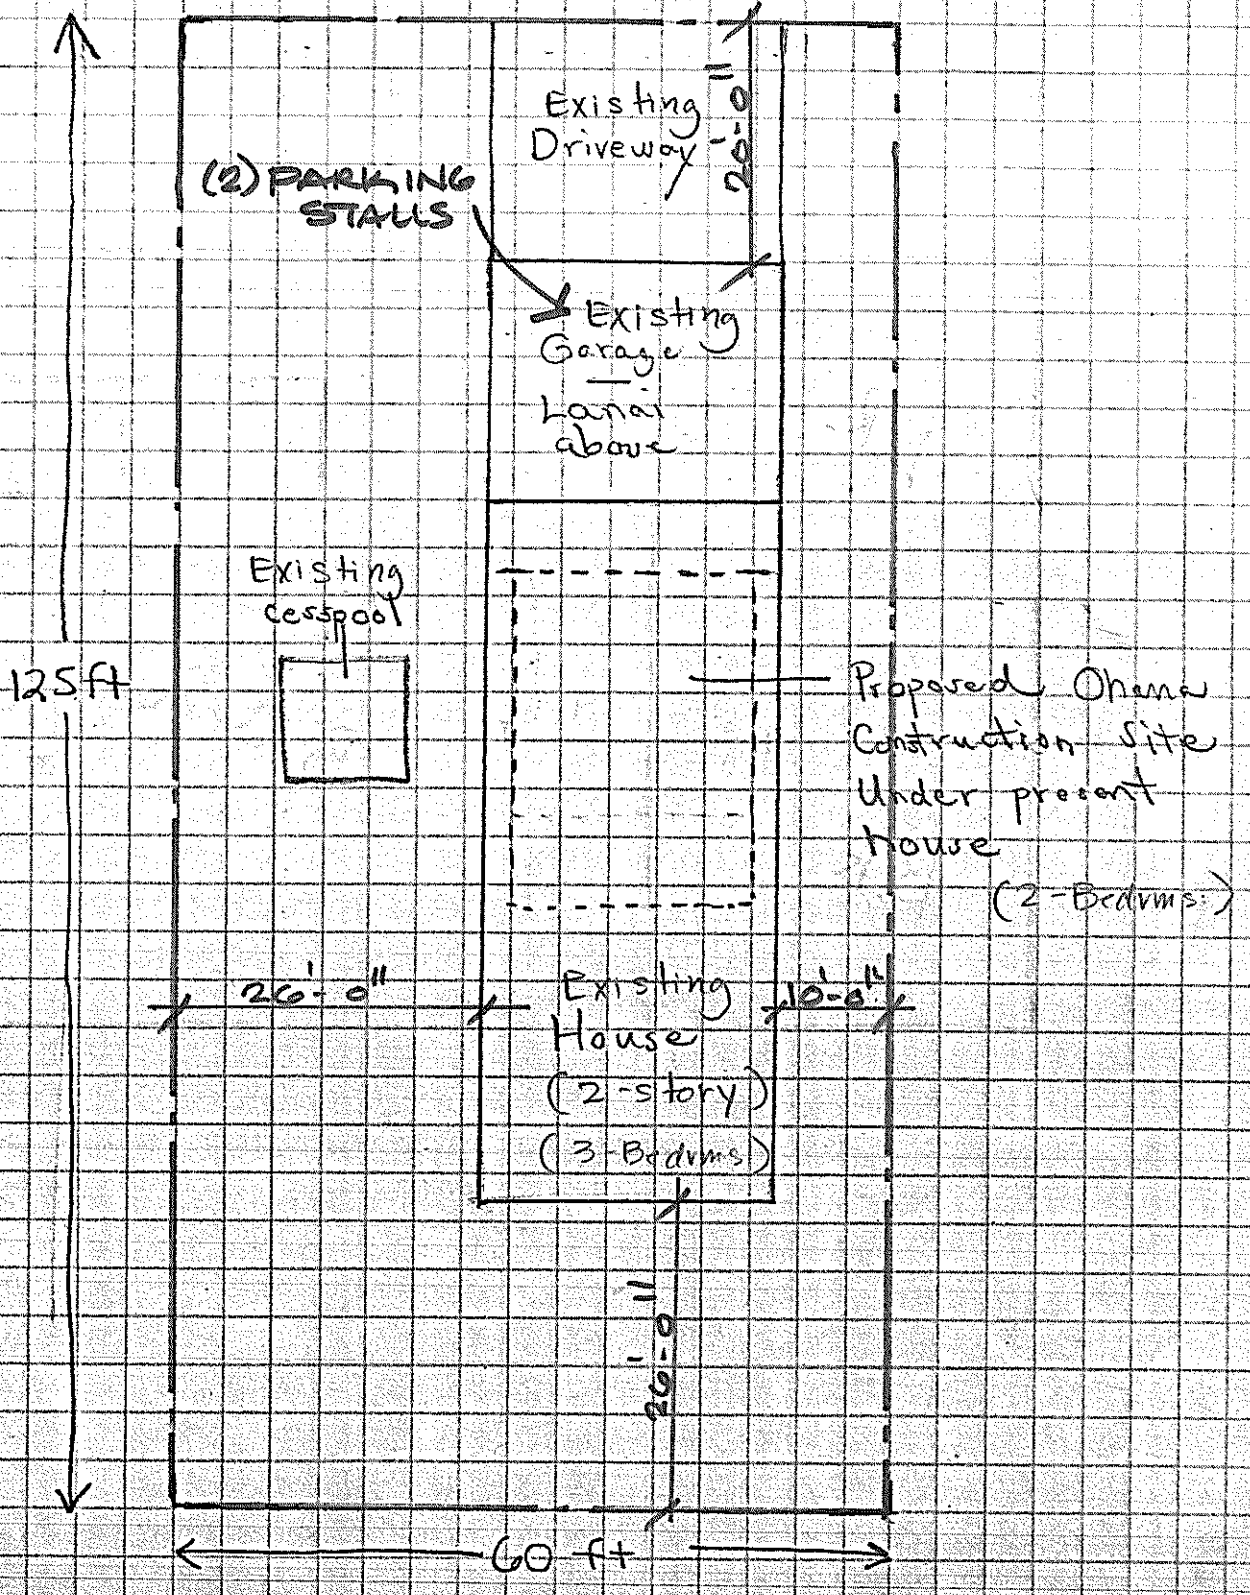 Existing
Driveway
20'-0"
(2) PARKING
STALLS
Existing
Garage
—
Lanai
above
Existing
cesspool
125 ft
Proposed Ohana
Construction Site
Under present
house
(2-Bedrms.)
26'-0"
Existing
House
(2-story)
(3-Bedrms)
10'-0"
26'-0"
60 ft